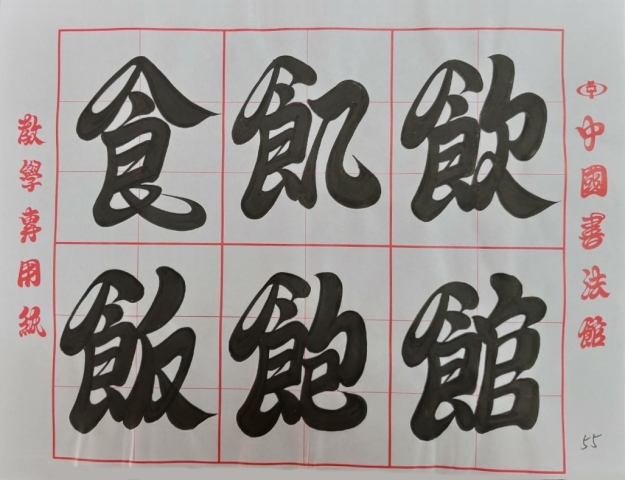 食飢飲
飯飽館
中國書法館
教學專用紙
55